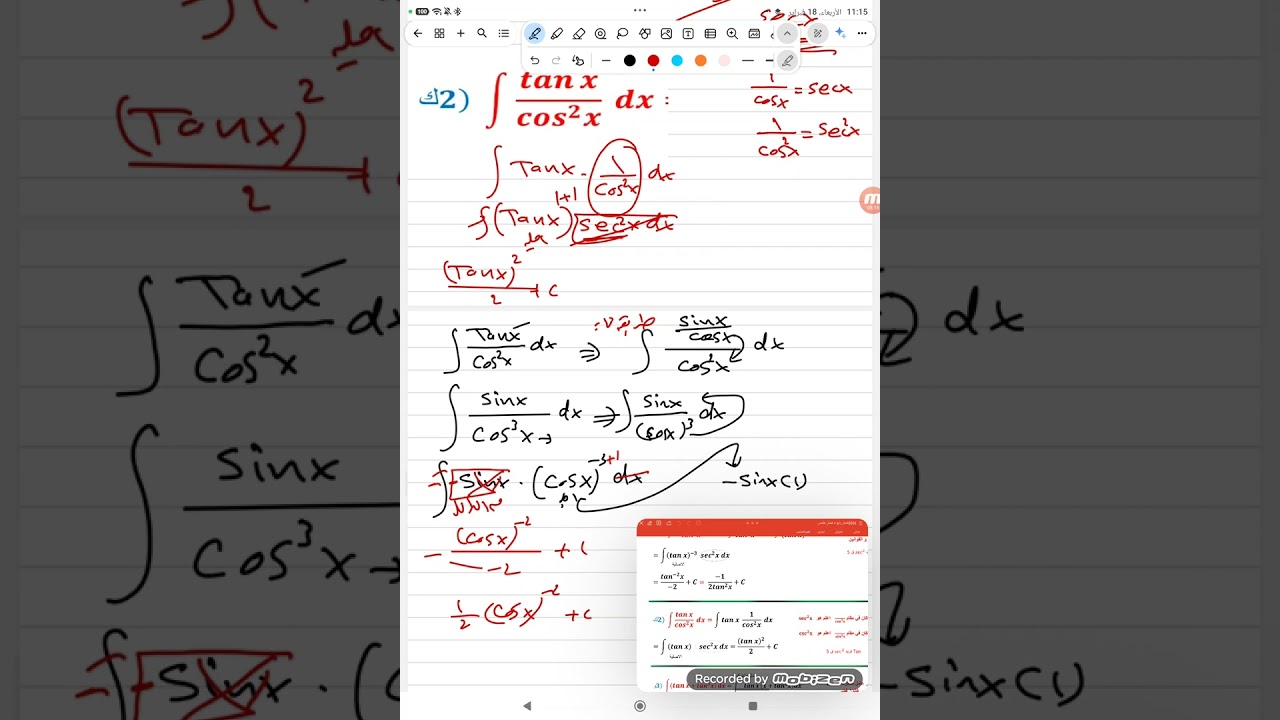 11:15 الأربعاء، 18 فبراير
100
1/cosx = secx
1/cos²x = sec²x
ك2) ∫ tan x / cos²x dx :
∫ Tanx · 1/cos²x dx
∫ (Tanx)¹⁺¹ sec²x dx
(Tanx)²/2 + c
∫ Tanx/cos²x dx ⇒ ∫ (sinx/cosx)/cos²x dx
∫ sinx/cos³x dx ⇒ ∫ sinx/(cosx)³ dx
-∫ -sinx · (cosx)⁻³⁺¹ dx
-sinx(1)
- (cosx)⁻²/-2 + c
1/2 (cosx)⁻² + c
= ∫(tan x)⁻³ sec²x dx
= tan⁻²x/-2 + C = -1/2tan²x + C
ك2) ∫ tan x/cos²x dx = ∫ tan x 1/cos²x dx
= ∫(tan x) sec²x dx = (tan x)²/2 + C
Recorded by Mobizen